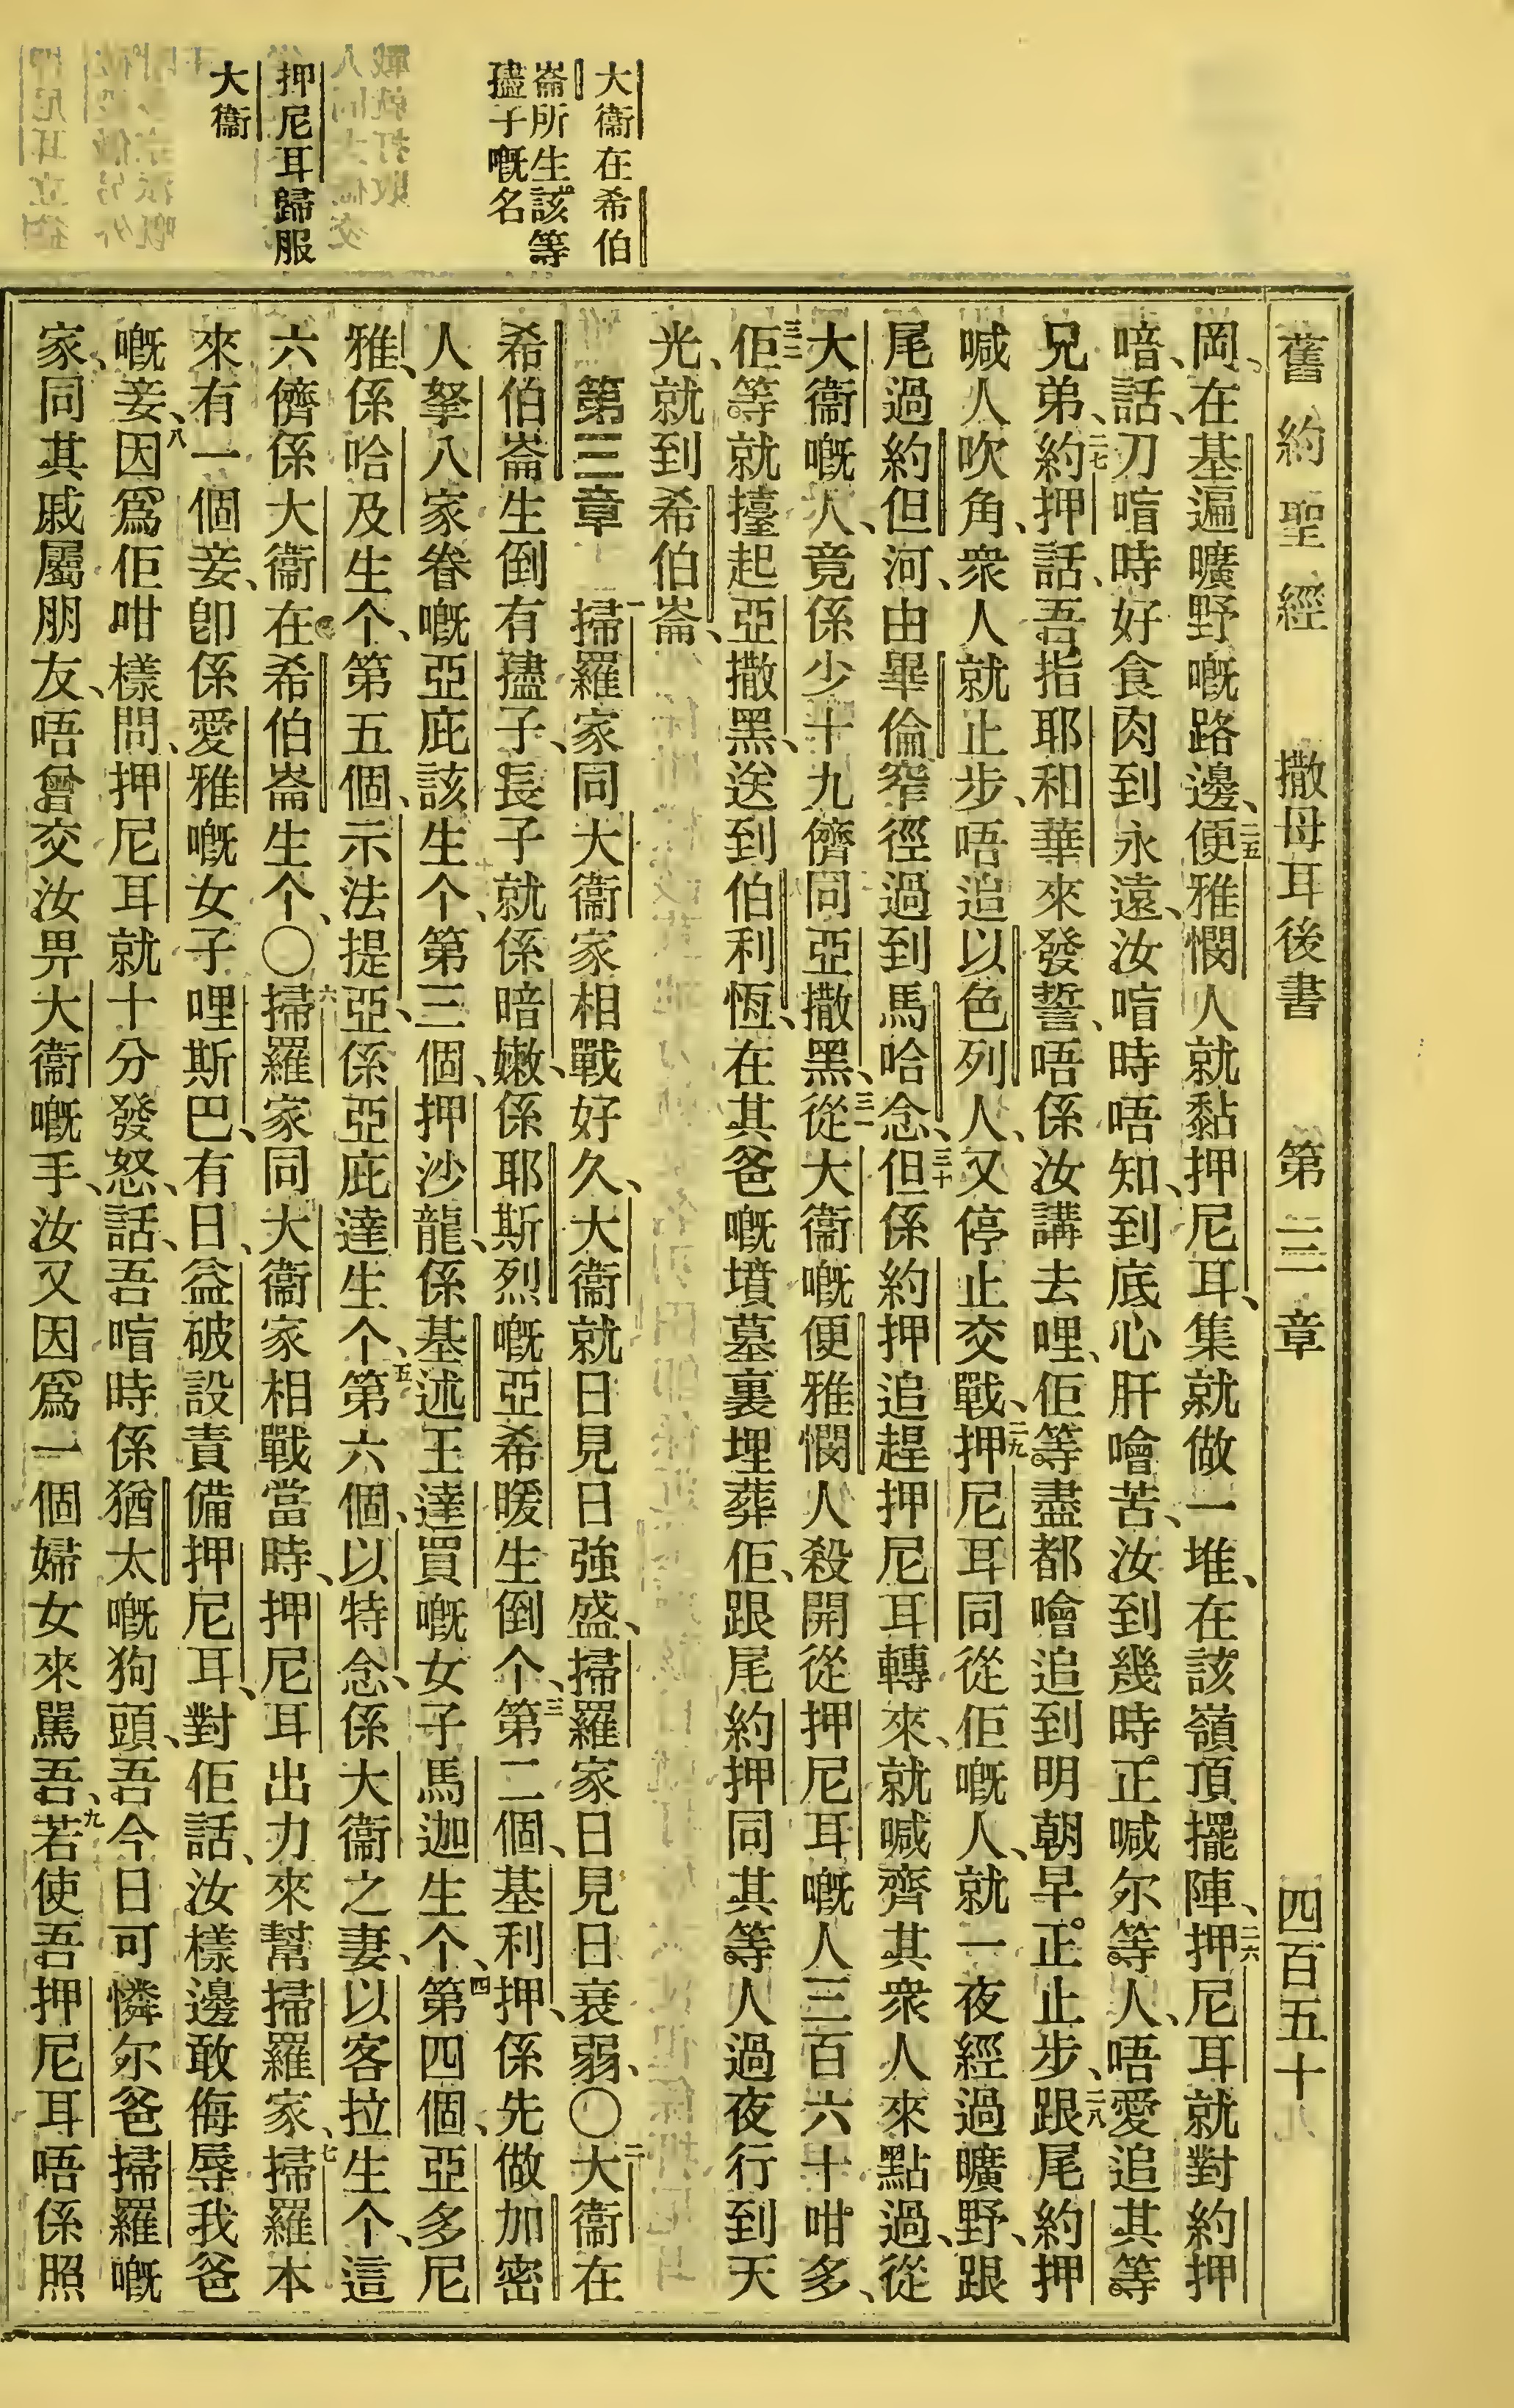 舊約聖經 撒母耳後書 第三章 四百五十
岡、在基遍曠野嘅路邊、二五便雅憫人就黏押尼耳、集就做一堆、在該嶺頂擺陣、二六押尼耳就對約押
喑、話、刀喧時好食肉到永遠、汝喧時唔知、到底心肝噲苦、汝到幾時正喊尔等人、唔愛追其等
兄弟、二七約押話、吾指耶和華來發誓、唔係汝講去哩、佢等盡都噲追到明朝早正止步、二八跟尾約押
喊人吹角、衆人就止步、唔追以色列人、又停止交戰、二九押尼耳同從佢嘅人、就一夜經過曠野、跟
尾過約但河、由畢倫窄徑過到馬哈念、三十但係約押追趕押尼耳轉來、就喊齊其衆人來點過、從
大衞嘅人、竟係少十九儕同亞撒黑、三一從大衞嘅便雅憫人殺開從押尼耳嘅人三百六十咁多、
三二佢等就擡起亞撒黑、送到伯利恆、在其爸嘅墳墓裏埋葬佢、跟尾約押同其等人過夜行到天
光、就到希伯崙、
第三章 一掃羅家同大衞家相戰好久、大衞就日見日強盛、掃羅家日見日衰弱、〇二大衞在
希伯崙生倒有𡥧子、長子就係暗嫩、係耶斯烈嘅亞希暖生倒个、三第二個、基利押、係先做加密
人拏八家眷嘅亞庇該生个、第三個、押沙龍、係基述王達買嘅女子馬迦生个、四第四個、亞多尼
雅、係哈及生个、第五個、示法提亞、係亞庇達生个、五第六個、以特念、係大衞之妻、以客拉生个、這
六儕係大衞在希伯崙生个、〇六掃羅家同大衞家相戰當時、押尼耳出力來幫掃羅家、七掃羅本
來有一個妾、卽係愛雅嘅女子哩斯巴、有日、益破設責備押尼耳、對佢話、汝樣邊敢侮辱我爸
嘅妾、八因爲佢咁樣問、押尼耳就十分發怒、話、吾喧時係猶太嘅狗頭、吾今日可憐尔爸掃羅嘅
家、同其戚屬朋友、唔曾交汝畀大衞嘅手、汝又因爲一個婦女來駡吾、九若使吾押尼耳唔係照
大衞在希伯
崙所生該等
𡥧子嘅名
押尼耳歸服
大衞